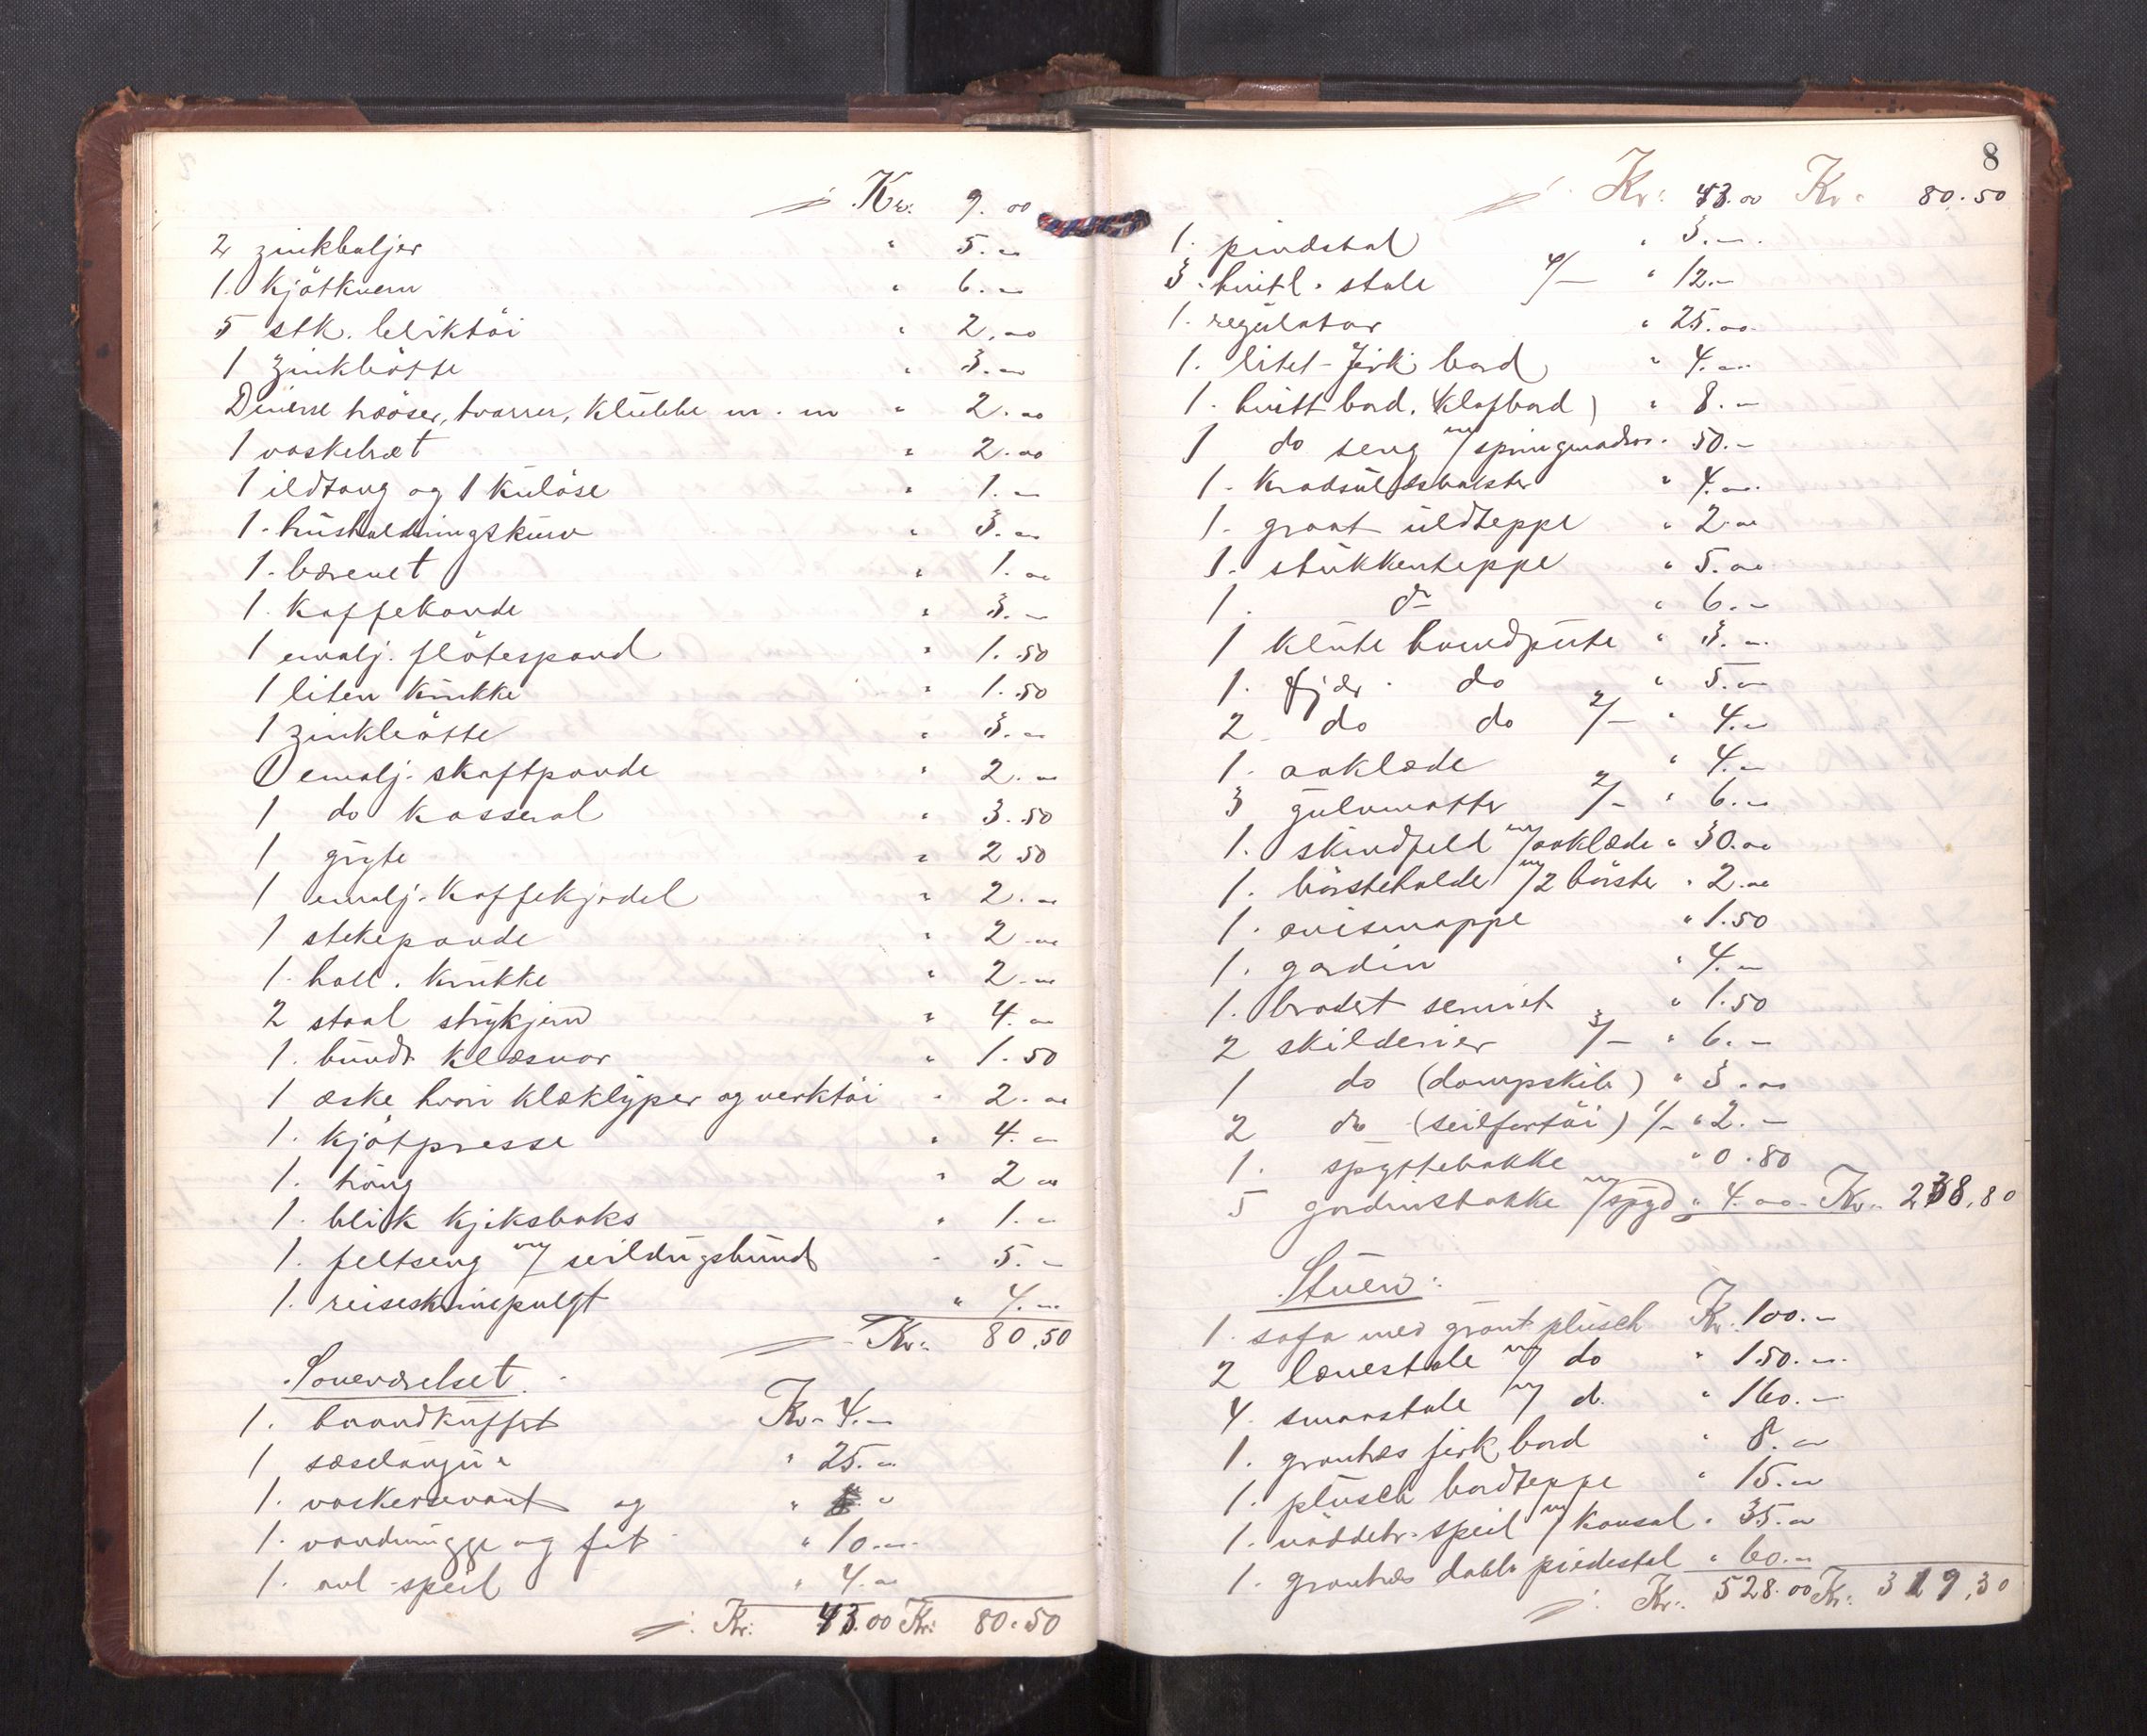 Kr. 9.00
2 zinkbaljer " 5.00
1. kjötkvern " 6.00
5 stk. bliktöi " 2.00
1 zinkbötte " 3.00
Diverse trööser, tvarrer, klubbe m. m " 2.00
1 vaskebræt " 2.00
1 ildtang og 1 kuløse " 1.00
1. husholdningskurv " 3.00
1. bærenet " 1.00
1. kaffekande " 3.00
1 emalj. flötespand " 1.50
1 liten krukke " 1.50
1 zinkbötte " 3.00
1 emalj. skaftpande " 2.00
1 do kasserol " 3.50
1 gryte " 2.50
1 emalj. kaffekjedel " 2.00
1 stekepande " 2.00
1. holl. krukke " 2.00
2 staal strykjern " 4.00
1. bundt klæsnor " 1.50
1 æske hvori klæklyper og verktöi " 2.00
1. kjötpresse " 4.00
1. traug " 2.00
1. blik kjeksboks " 1.00
1. feltseng m/ seildugsbund " 5.00
1. reiseskrinepulgt " 4.00
Kr. 80.50
Soveværelset.
1. haandkuffert Kr. 4.00
1 sæselonju " 25.00
1. vaskeservant og "
1. vandmugge og fat " 10.00
1. ovl speil " 4.00
Kr: 43.00 Kr: 80.50
8
Kr: 43.00 Kr. 80.50
1. pindstol " 3.00
3. hvitl. stole 4/- " 12.00
1. regulator " 25.00
1. litet firk bord " 4.00
1. hvitt bord. (klafbord) " 8.00
1 do seng m/springmadras. 50.00
1. kradsuldsbolster " 4.00
1. graat uldteppe " 2.00
1. stukkenteppe " 5.00
1. do " 6.00
1 klute hovedpute " 3.00
1. fjær. do " 5.00
2 do do 2/- " 4.00
1. aaklæde " 4.00
3 gulvmatter 2/- " 6.00
1. skindfeld m/aaklæde " 30.00
1. börsteholde m/2 börster " 2.00
1. avismappe " 1.50
1. gardin " 4.00
1. brodert serviet " 1.50
2 skilderier 3/- " 6.00
1 do (dampskib) " 3.00
2 do (seilfartöi) 1/- " 2.00
1. spyttebakke " 0.80
5 gardinstokke m/spyd " 4.00. Kr. 238.80
Stuen:
1. sofa med grönt plusch Kr. 100.00
2 lænestole m/ do " 150.00
4. smaastole m/ do. " 160.00
1. graahvs firk bord " 8.00
1. plusch bordteppe " 15.00
1. nöddetr. speil m/ konsol " 35.00
1. graahvs dobb. piedestal " 60.00
Kr. 528.00 Kr: 319.30